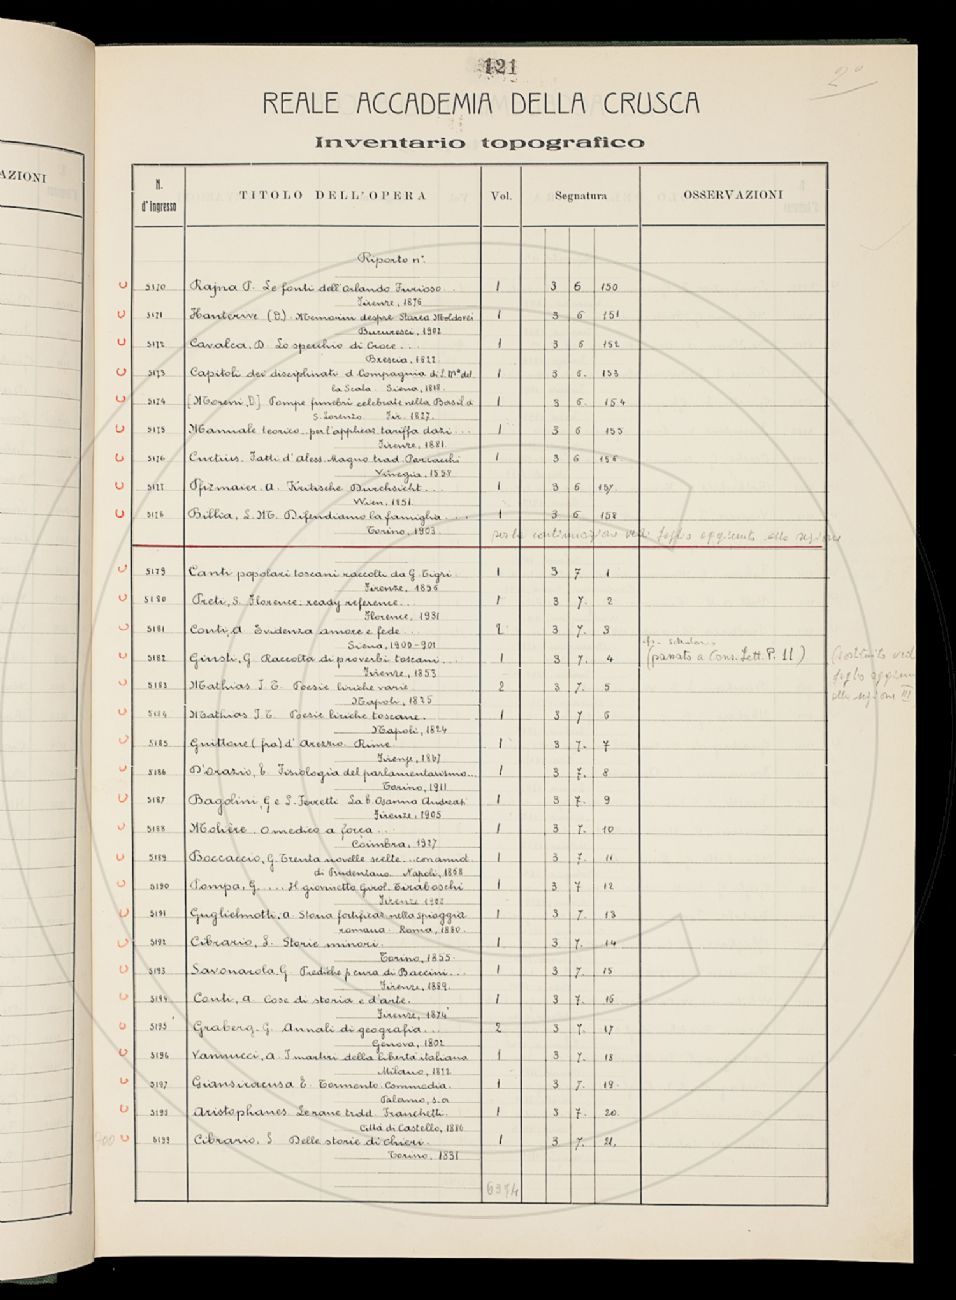 AZIONI
121
2°
REALE ACCADEMIA DELLA CRUSCA
Inventario topografico
N. d'ingresso TITOLO DELL'OPERA Vol. Segnatura OSSERVAZIONI
Riporto n°.
5170 Rajna P. Le fonti dell'Orlando Furioso.. 1 3 6 150
Firenze, 1876
5171 (D.) Memoriu despre starea Moldovei 1 3 6 151
Bucuresci, 1902
5172 Cavalca, D. Lo specchio di Croce... 1 3 6 152
Brescia, 1822
5173 Capitoli dei disciplinati d Compagnia di S. Mª del 1 3 6. 153
la Scala. Siena, 1818.
5174 [Moreni, D.] Pompe funebri celebrate nella Basil.a 1 3 6. 154
S. Lorenzo. Fir. 1827.
5175 Mannale teorico per l'applicaz. tariffa dazi... 1 3 6 155
Firenze, 1881.
5176 Curtius. Fatti d'Aless. Magno trad. Porcacchi 1 3 6 156
Vinegia, 1558
5177 Pfizmaier. A. Kritische Durchsicht... 1 3 6 157.
Wien, 1851.
5178 Billia, L. M. Difendiamo la famiglia.... 1 3 6. 158
Torino, 1903.
per la continuazione vedi foglio aggiunto alla sezione
5179 Canti popolari toscani raccolti da G. Tigri. 1 3 7 1
Firenze, 1856
5180 S. Florence: ready reference.. 1 3 7. 2
Florence, 1931
5181 Conti, A. Evidenza amore e fede... 2 3 7. 3
Siena, 1900-901
5182 Giusti, G. Raccolta di proverbi toscani... 1 3 7. 4 (passato a Cons. Lett. P. 11) (sostituito vedi
Firenze, 1853 foglio aggiun
5183 Mathias T. E. Poesie liriche varie. 2 3 7. 5 alla sezione III
Napoli, 1825
5184 Mathias T. E. Poesie liriche toscane. 1 3 7 6
Napoli, 1824
5185 Guittone (fra) d'Arezzo Rime. 1 3 7. 7
Firenze, 1867
5186 D'Orazio, E. Fisiologia del parlamentarismo... 1 3 7. 8
Torino, 1911
5187 Bagolini, G e L. Ferretti La b. Osanna Andreasi 1 3 7. 9
Firenze, 1905
5188 Molière. O medico a força... 1 3 7. 10
Coimbra, 1927
5189 Boccaccio, G. Trenta novelle scelte... con annot. 1 3 7. 11
di Prudenzano. Napoli, 1868
5190 Pompa, G.... Il giovinetto Girol. Tiraboschi 1 3 7 12
Firenze 1902
5191 Guglielmotti, A. Storia fortificaz. nella spiaggia 1 3 7. 13
romana. Roma, 1880.
5192 Cibrario, L. Storie minori. 1 3 7. 14
Torino, 1855.
5193 Savonarola, G. Prediche p cura di Baccini... 1 3 7. 15
Firenze, 1889.
5194 Conti, A. Cose di storia e d'arte. 1 3 7. 16
Firenze, 1874
5195 Graberg. G. Annali di geografia... 2 3 7. 17
Genova, 1802
5196 Vannucci, A. I martiri della libertà italiana 1 3 7. 18
Milano, 1872
5197 Giansiracusa E. Tormento. Commedia. 1 3 7. 19.
Palermo, s.a
5198 Aristophanes. Le rane trad. Franchetti. 1 3 7. 20.
Città di Castello, 1886
700 5199 Cibrario, L. Delle storie di Chieri. 1 3 7. 21.
Torino, 1831
6974